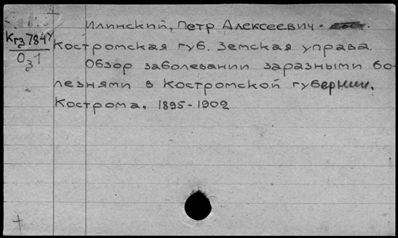 Илинский, Петр Алексеевич.
Кгз 784у
Оз1
Костромская губ. Земская управа.
Обзор заболевании заразными бо-
лезнями в Костромской губернии.
Кострома. 1895-1902